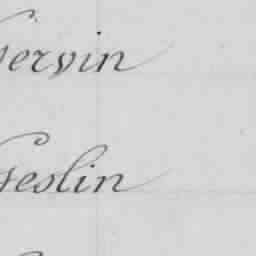 Gervin
Geslin